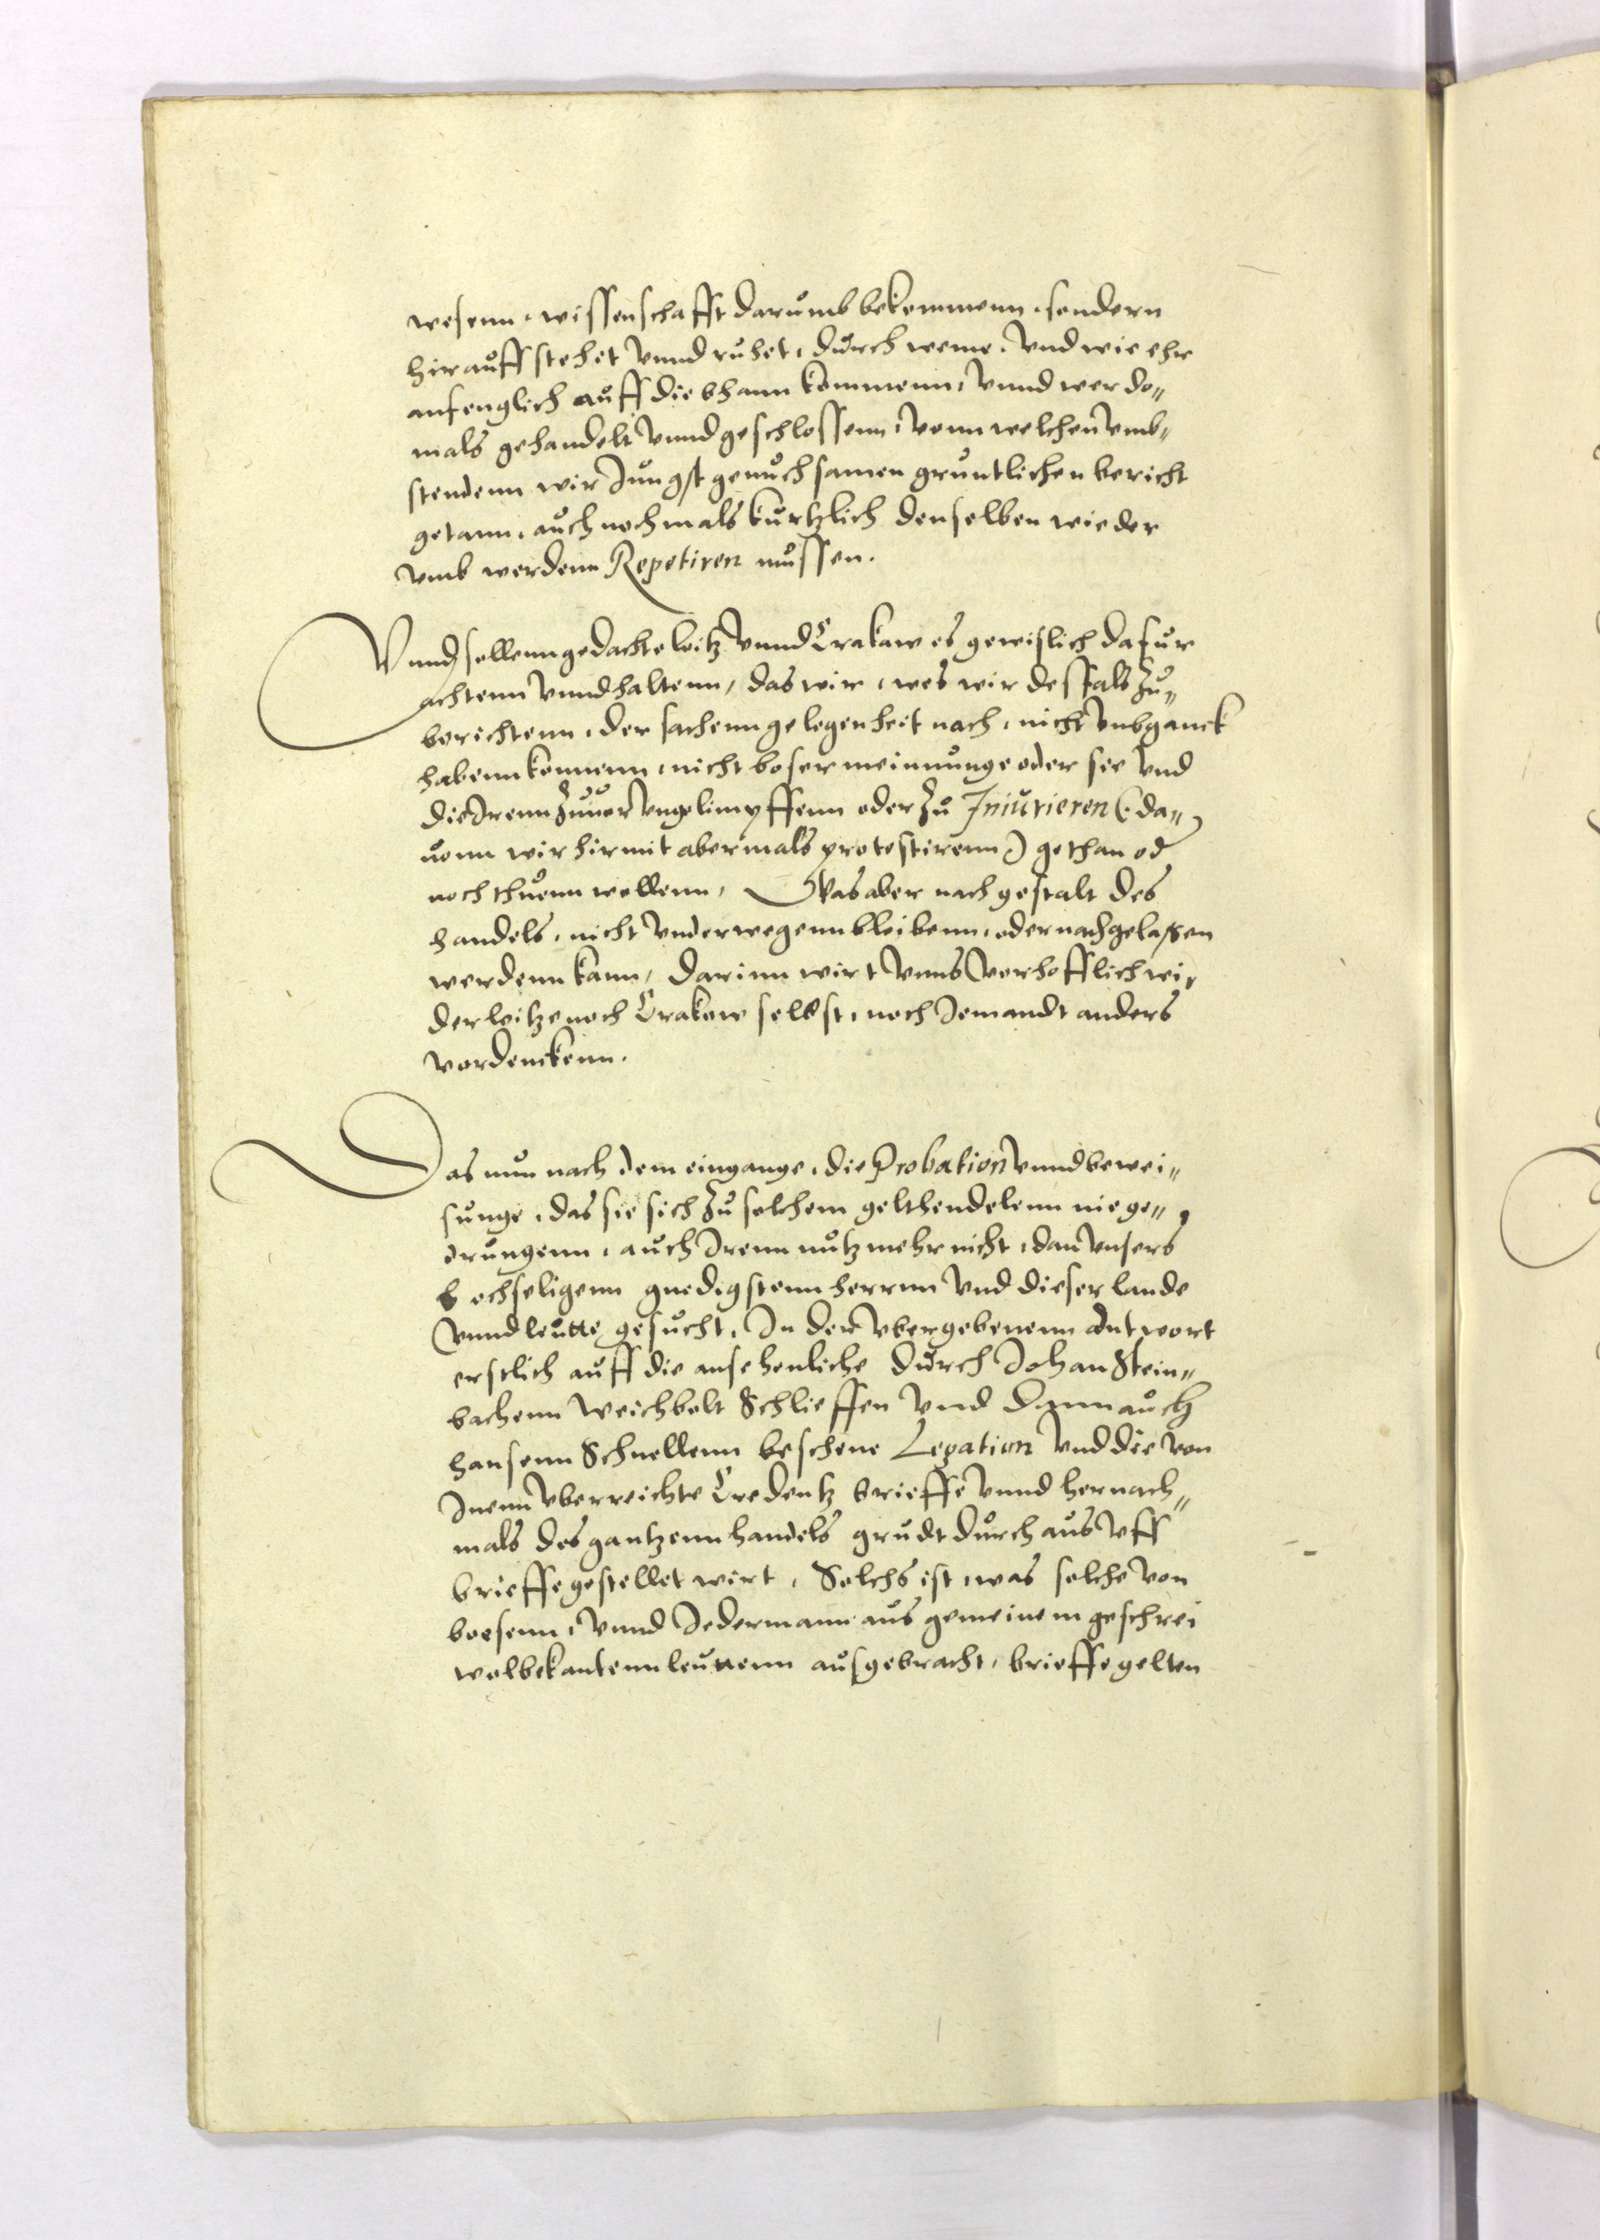 wesenn, wissenschafft darumb bekommenn, sondern
hirauff stehet vnnd ruhet, durch weme, vnd wie ehr
anfenglich auff die bhann kommenn, vnnd wer do„
mals gehandelt vnnd geschlossenn, vonn welchen vmb„
stendenn wir Jungst genuchsamen gruntlichen bericht
getann, auch nochmals kurtzlich denselben wieder
vmb werdenn Repetiren mussen.
Vnnd sollenn gedachte loitz vnnd Crakaw es gewislich dafur
achtenn vnnd haltenn, das wir, wes wir desfals zu„
berichtenn, der sachenn gelegenheit nach, nicht vmbganck
habenn konnenn, nicht boser meinunge oder sie vnd
die Irenn zuuor vnglimpffenn oder zu Iniurieren (: da„
uonn wir hirmit abermals protestirenn) gethan od
noch thuenn wollenn, Was aber nach gestalt des
handels, nicht vnderwegenn bleibenn, oder nachgelassen
werdenn kann, darinn wirt vnns verhofflich wi„
der loitze noch Crakow selbst, noch Jemandt anders
vordenckenn.
Das nun nach dem eingange, die Probation vnnd bewei„
sunge, das sie sich zu solchem gelthendelenn nie ge„
drungenn, auch Irenn nutz mehr nicht, dan vnsers
hochseligenn gnedigstenn herrnn vnd dieser lande
vnnd leutte gesucht, In der vbergebenenn antwort
erstlich auff die ansehenliche durch Johan Stein„
bachenn Weichbolt Schlieffen vnd dann auch
hansenn Schnellenn beschene Legation vnd die von
Inenn vberreichte Credentz brieffe vnnd hernach„
mals des gantzenn handels grudt durchaus vff
brieffe gestellet wirt, Solchs ist, was solche von
boesenn, vnnd Jedermann aus gemeinem geschrei
wolbekantenn leuttenn ausgebracht, brieffe gelten